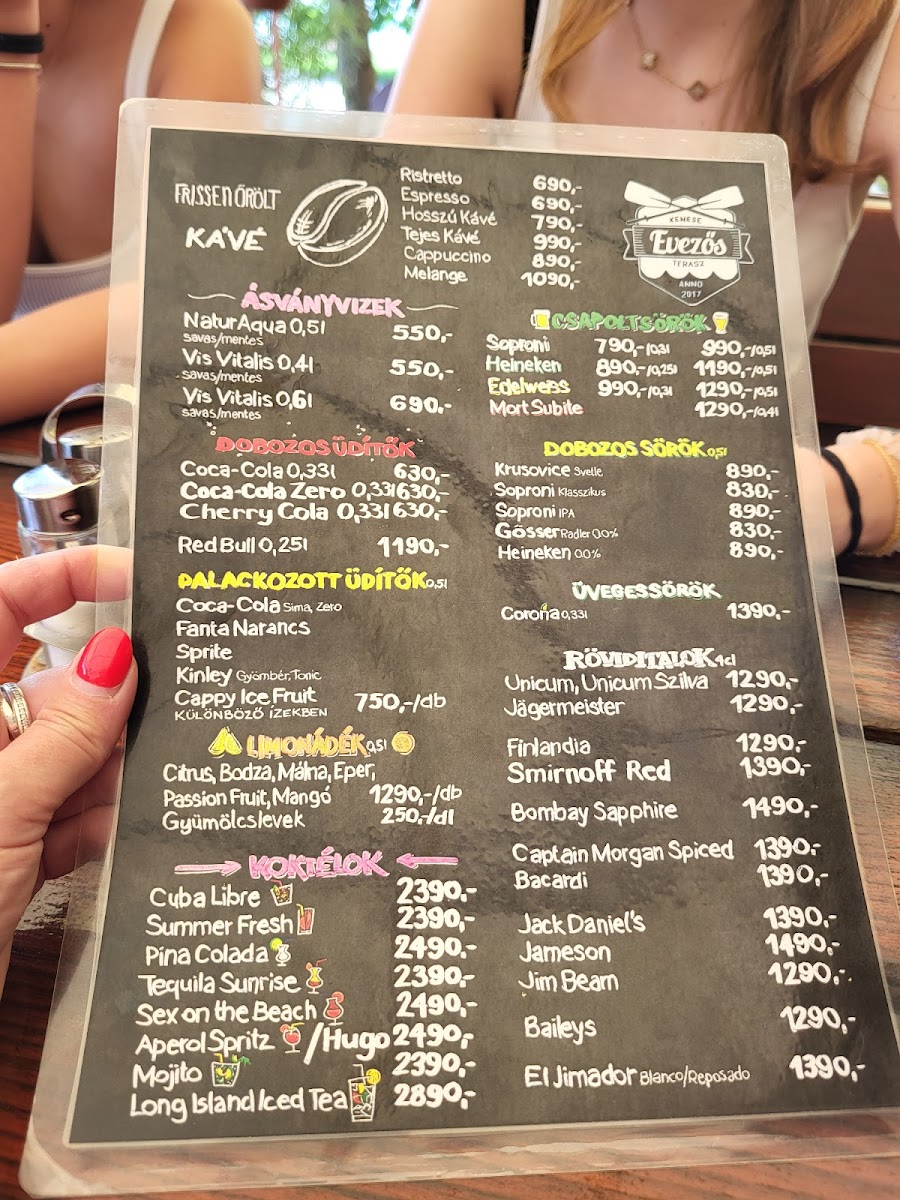 FRISSEN ŐRÖLT
KÁVÉ
Ristretto 690,-
Espresso 690,-
Hosszú Kávé 790,-
Tejes Kávé 990,-
Cappuccino 890,-
Melange 1090,-
KEMESE
Evezős
TERASZ
ANNO
2017
ÁSVÁNYVIZEK
NaturAqua 0,5l 550,-
savas/mentes
Vis Vitalis 0,4l 550,-
savas/mentes
Vis Vitalis 0,6l 690,-
savas/mentes
DOBOZOS ÜDÍTŐK
Coca-Cola 0,33l 630,-
Coca-Cola Zero 0,33l 630,-
Cherry Cola 0,33l 630,-
Red Bull 0,25l 1190,-
PALACKOZOTT ÜDÍTŐK 0,5l
Coca-Cola Sima, Zero
Fanta Narancs
Sprite
Kinley Gyömbér, Tonic
Cappy Ice Fruit 750,-/db
KÜLÖNBÖZŐ ÍZEKBEN
LIMONÁDÉK 0,5l
Citrus, Bodza, Málna, Eper,
Passion Fruit, Mangó 1290,-/db
Gyümölcslevek 250,-/dl
KOKTÉLOK
Cuba Libre 2390,-
Summer Fresh 2390,-
Pina Colada 2490,-
Tequila Sunrise 2390,-
Sex on the Beach 2490,-
Aperol Spritz /Hugo 2490,-
Mojito 2390,-
Long Island Iced Tea 2890,-
CSAPOLT SÖRÖK
Soproni 790,-/0,3l 990,-/0,5l
Heineken 890,-/0,25l 1190,-/0,5l
Edelweiss 990,-/0,3l 1290,-/0,5l
Mort Subite 1290,-/0,4l
DOBOZOS SÖRÖK 0,5l
Krusovice Svetle 890,-
Soproni Klasszikus 830,-
Soproni IPA 890,-
Gösser Radler 0.0% 830,-
Heineken 0.0% 890,-
ÜVEGES SÖRÖK
Corona 0,33l 1390,-
RÖVIDITALOK 4cl
Unicum, Unicum Szilva 1290,-
Jägermeister 1290,-
Finlandia 1290,-
Smirnoff Red 1390,-
Bombay Sapphire 1490,-
Captain Morgan Spiced 1390,-
Bacardi 1390,-
Jack Daniel's 1390,-
Jameson 1490,-
Jim Beam 1290,-
Baileys 1290,-
El Jimador Blanco/Reposado 1390,-